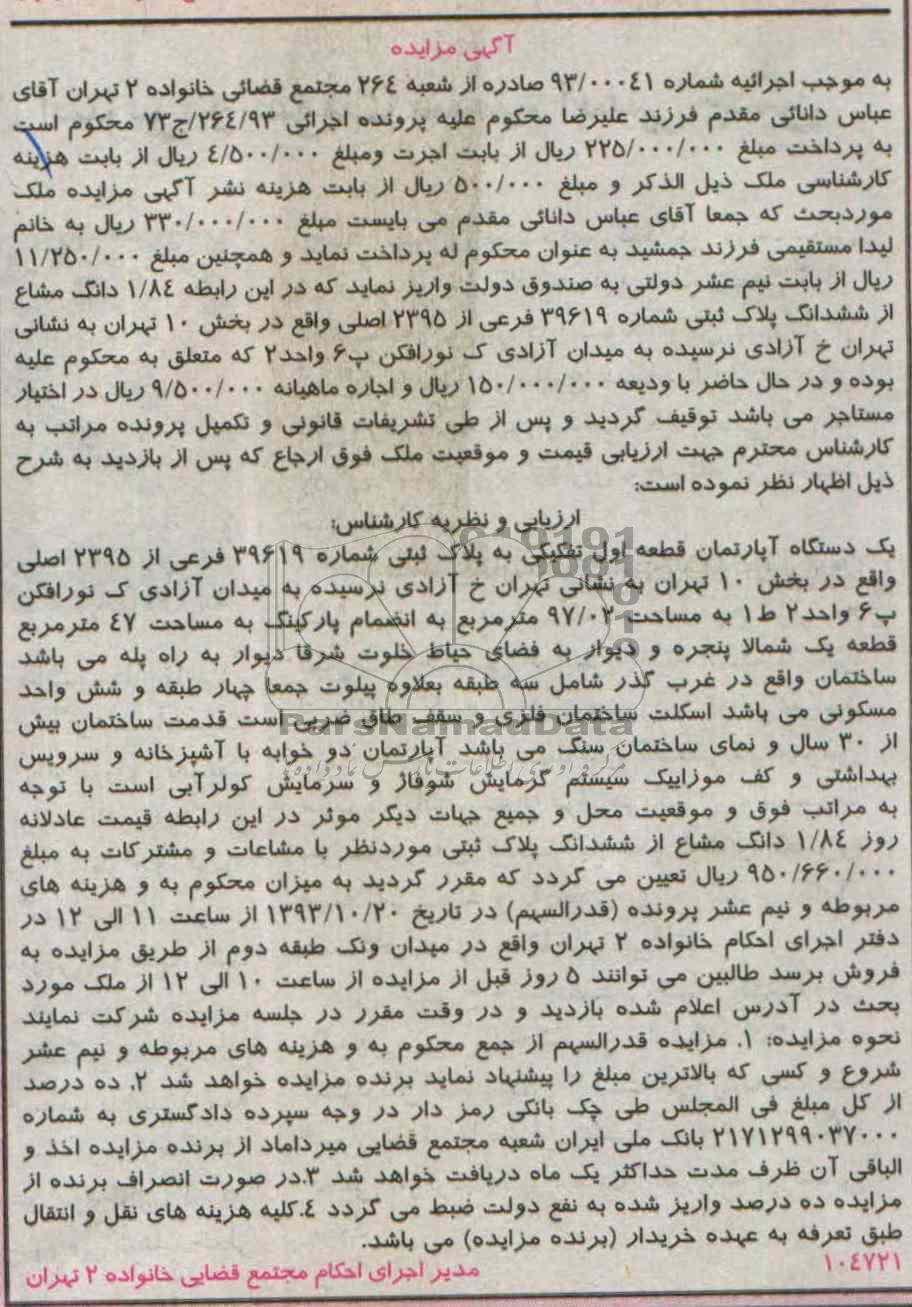 آگهی مزایده
به موجب اجرائیه شماره ۹۳/۰۰۰٤۱ صادره از شعبه ۲۶٤ مجتمع قضائی خانواده ۲ تهران آقای
عباس دانائی مقدم فرزند علیرضا محکوم علیه پرونده اجرائی ۲۶٤/۹۳/ج۷۳ محکوم است
به پرداخت مبلغ ۲۲۵/۰۰۰/۰۰۰ ریال از بابت اجرت ومبلغ ٤/۵۰۰/۰۰۰ ریال از بابت هزینه
کارشناسی ملک ذیل الذکر و مبلغ ۵۰۰/۰۰۰ ریال از بابت هزینه نشر آگهی مزایده ملک
موردبحث که جمعا آقای عباس دانائی مقدم می بایست مبلغ ۳۳۰/۰۰۰/۰۰۰ ریال به خانم
لیدا مستقیمی فرزند جمشید به عنوان محکوم له پرداخت نماید و همچنین مبلغ ۱۱/۲۵۰/۰۰۰
ریال از بابت نیم عشر دولتی به صندوق دولت واریز نماید که در این رابطه ۱/۸٤ دانگ مشاع
از ششدانگ پلاک ثبتی شماره ۳۹۶۱۹ فرعی از ۲۳۹۵ اصلی واقع در بخش ۱۰ تهران به نشانی
تهران خ آزادی نرسیده به میدان آزادی ک نورافکن پ۶ واحد۲ که متعلق به محکوم علیه
بوده و در حال حاضر با ودیعه ۱۵۰/۰۰۰/۰۰۰ ریال و اجاره ماهیانه ۹/۵۰۰/۰۰۰ ریال در اختیار
مستاجر می باشد توقیف گردید و پس از طی تشریفات قانونی و تکمیل پرونده مراتب به
کارشناس محترم جهت ارزیابی قیمت و موقعیت ملک فوق ارجاع که پس از بازدید به شرح
ذیل اظهار نظر نموده است:
ارزیابی و نظریه کارشناس:
یک دستگاه آپارتمان قطعه اول تفکیکی به پلاک ثبتی شماره ۳۹۶۱۹ فرعی از ۲۳۹۵ اصلی
واقع در بخش ۱۰ تهران به نشانی تهران خ آزادی نرسیده به میدان آزادی ک نورافکن
پ۶ واحد۲ ط۱ به مساحت ۹۷/۰۲ مترمربع به انضمام پارکینگ به مساحت ٤۷ مترمربع
قطعه یک شمالا پنجره و دیوار به فضای حیاط خلوت شرقا دیوار به راه پله می باشد
ساختمان واقع در غرب گذر شامل سه طبقه بعلاوه پیلوت جمعا چهار طبقه و شش واحد
مسکونی می باشد اسکلت ساختمان فلزی و سقف طاق ضربی است قدمت ساختمان بیش
ParsNamadData
از ۳۰ سال و نمای ساختمان سنگ می باشد آپارتمان دو خوابه با آشپزخانه و سرویس
بهداشتی و کف موزاییک سیستم گرمایش شوفاژ و سرمایش کولرآبی است با توجه
به مراتب فوق و موقعیت محل و جمیع جهات دیگر موثر در این رابطه قیمت عادلانه
روز ۱/۸٤ دانگ مشاع از ششدانگ پلاک ثبتی موردنظر با مشاعات و مشترکات به مبلغ
۹۵۰/۶۶۰/۰۰۰ ریال تعیین می گردد که مقرر گردید به میزان محکوم به و هزینه های
مربوطه و نیم عشر پرونده (قدرالسهم) در تاریخ ۱۳۹۳/۱۰/۲۰ از ساعت ۱۱ الی ۱۲ در
دفتر اجرای احکام خانواده ۲ تهران واقع در میدان ونک طبقه دوم از طریق مزایده به
فروش برسد طالبین می توانند ۵ روز قبل از مزایده از ساعت ۱۰ الی ۱۲ از ملک مورد
بحث در آدرس اعلام شده بازدید و در وقت مقرر در جلسه مزایده شرکت نمایند
نحوه مزایده: ۱. مزایده قدرالسهم از جمع محکوم به و هزینه های مربوطه و نیم عشر
شروع و کسی که بالاترین مبلغ را پیشنهاد نماید برنده مزایده خواهد شد ۲. ده درصد
از کل مبلغ فی المجلس طی چک بانکی رمز دار در وجه سپرده دادگستری به شماره
۲۱۷۱۲۹۹۰۳۷۰۰۰ بانک ملی ایران شعبه مجتمع قضایی میرداماد از برنده مزایده اخذ و
الباقی آن ظرف مدت حداکثر یک ماه دریافت خواهد شد ۳.در صورت انصراف برنده از
مزایده ده درصد واریز شده به نفع دولت ضبط می گردد ٤.کلیه هزینه های نقل و انتقال
طبق تعرفه به عهده خریدار (برنده مزایده) می باشد.
۱۰٤۷۲۱
مدیر اجرای احکام مجتمع قضایی خانواده ۲ تهران